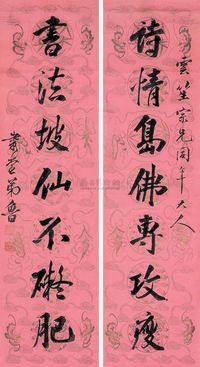 詩情島佛專攻瘦
雲笙宗兄同年大人
書法坡仙不礙肥
弟魯